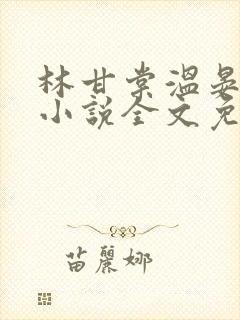 林甘棠溫晏
小說全文免
苗麗娜